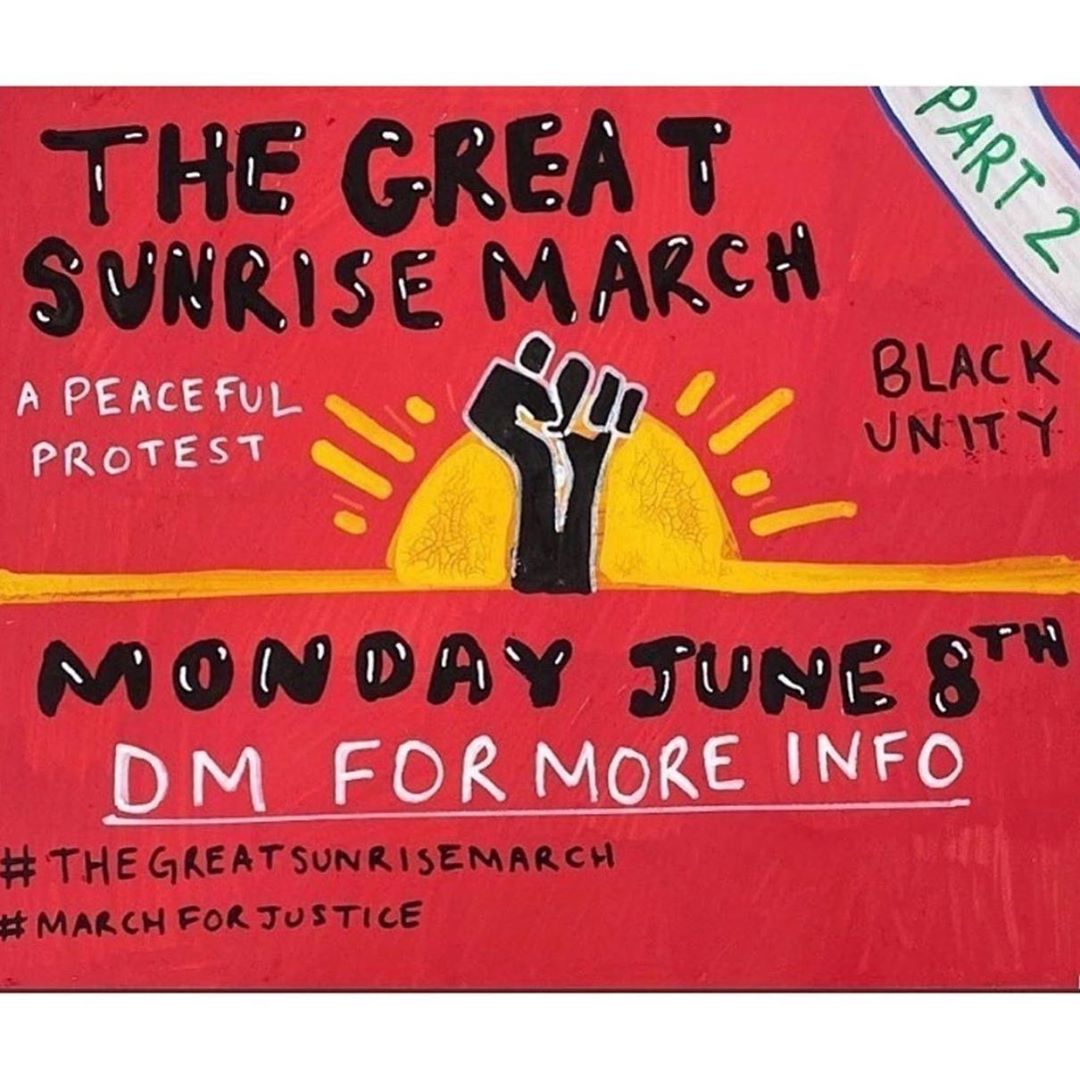 THE GREAT
SUNRISE MARCH
PART 2
A PEACEFUL
PROTEST
BLACK
UNITY
MONDAY JUNE 8TH
DM FOR MORE INFO
#THEGREATSUNRISEMARCH
#MARCHFORJUSTICE